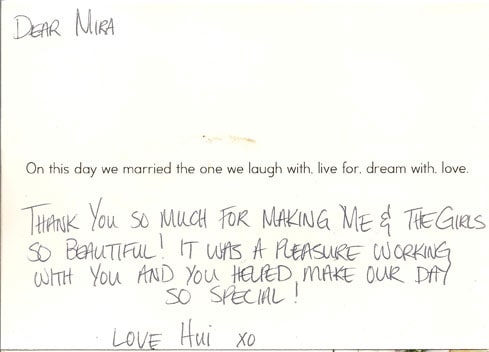 DEAR MIRA
On this day we married the one we laugh with, live for, dream with, love.
THANK YOU SO MUCH FOR MAKING ME & THE GIRLS
SO BEAUTIFUL! IT WAS A PLEASURE WORKING
WITH YOU AND YOU HELPED MAKE OUR DAY
SO SPECIAL!
LOVE HUI XO